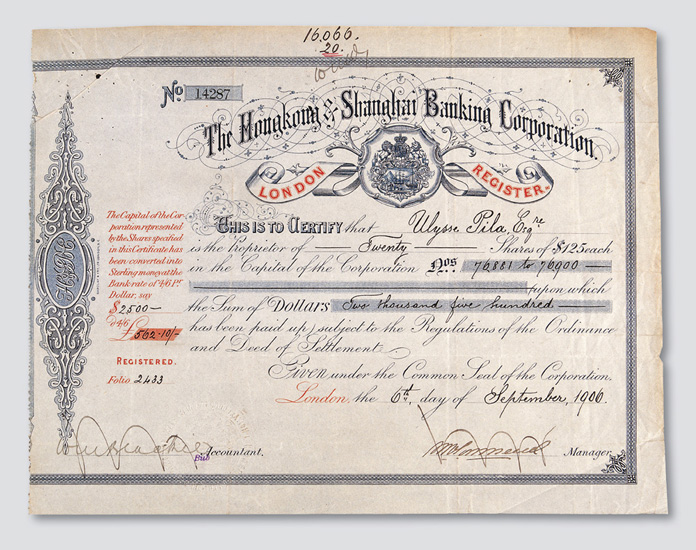 16,066.
20.
No 14287
The Hongkong & Shanghai Banking Corporation.
LONDON REGISTER.
The Capital of the Cor-
poration represented
by the Shares specified
in this Certificate has
been converted into
Sterling money at the
Bank rate of 4/6 per
Dollar, say
$2500—
@ 4/6
£562-10/-
REGISTERED.
Folio 2433
THIS IS TO CERTIFY that Ulysse Pila, Esqre
is the Proprietor of Twenty Shares of $125 each
in the Capital of the Corporation Nos 76881 to 76900
upon which
the Sum of Dollars Two thousand five hundred
has been paid up, subject to the Regulations of the Ordinance
and Deed of Settlement.
Given under the Common Seal of the Corporation.
London, the 6th, day of September, 1906.
Accountant.
Manager.